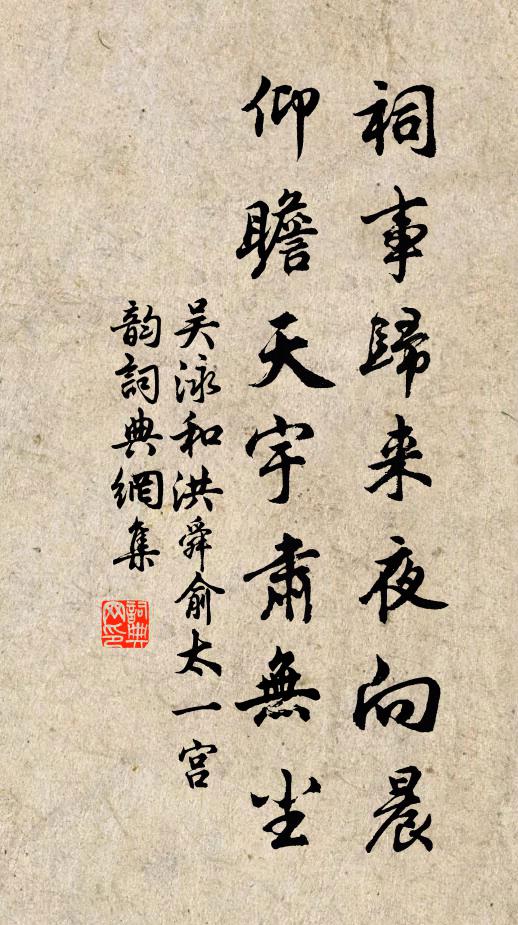 祠事歸来夜向晨
仰瞻天宇肅無尘
吴泳和洪舜俞太一宫
韵詞典網集
詞典网印